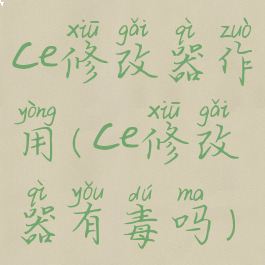 xiū gǎi qì zuò
ce修改器作
yòng xiū gǎi
用(ce修改
qì yǒu dú ma
器有毒吗)